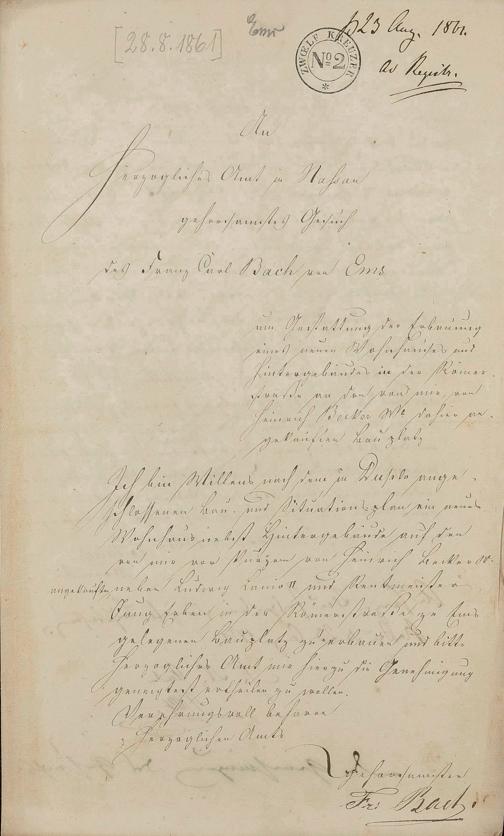 [28.8.1861]
Ems
ZWOELF KREUZER
No 2
23 Aug. 1861.
ad Registr.
An
Herzogliches Amt zu Nassau
gehorsamstes Gesuch
des Franz Carl Bach von Ems
um Gestattung der Erbauung
eines neuen Wohnhauses und
Hintergebäudes in der Römer-
straße an den von mir, von
Heinrich Becker We dahier an-
gekauften Bauplatz
Ich bin Willens nach dem in Duplo ange-
schlossenen Bau- und Situations-plan ein neues
Wohnhaus nebst Hintergebäude auf den
von mir vor Kurzem von Heinrich Becker We
angekauften, neben Ludwig II und Rentmeister
Erben in der Römerstraße zu Ems
gelegenen Bauplatz zu erbauen und bitte
Herzogliches Amt mir hierzu die Genehmigung
geneigtest ertheilen zu wollen.
Verehrungsvoll beharre
Herzoglichen Amts
Gehorsamster
Fr. Bach